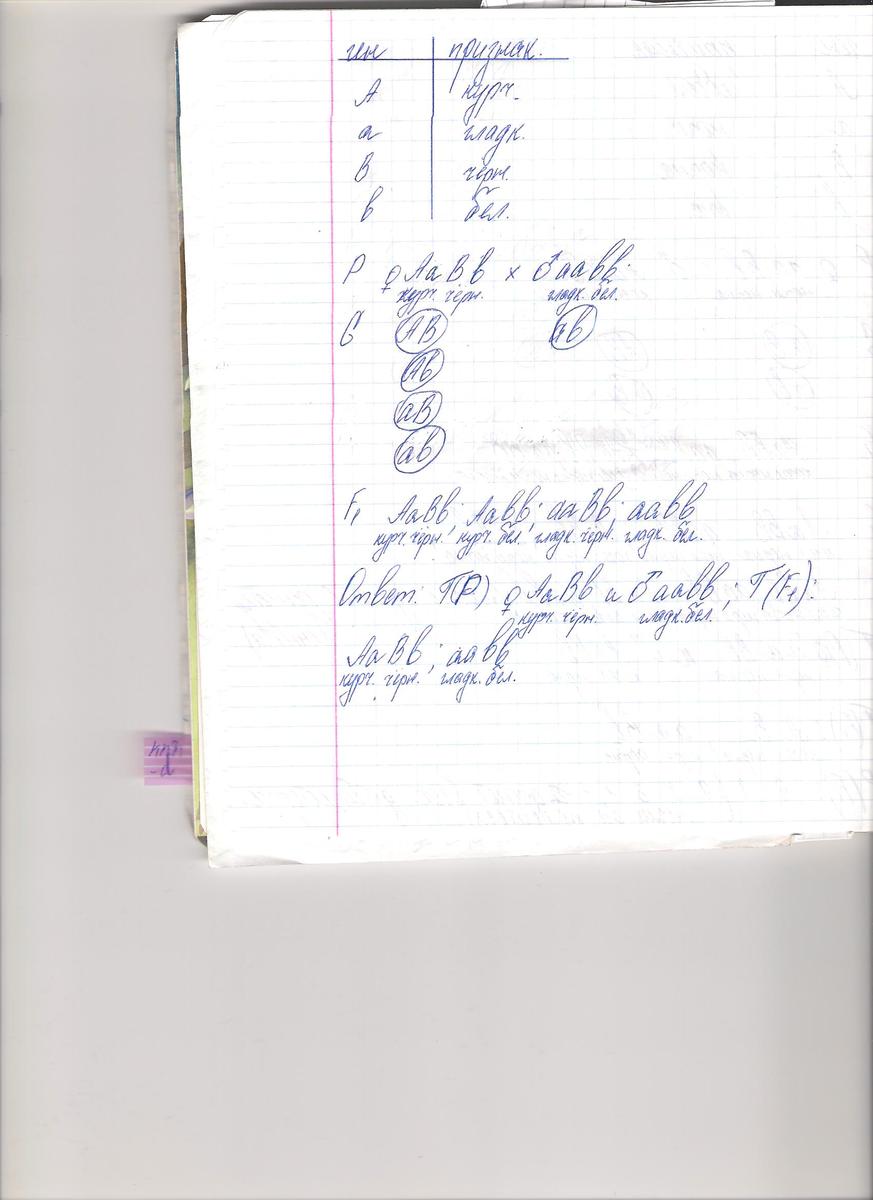 ген признак.
А курч.
а гладк.
В чёрн.
в бел.
Р ♀АаВв × ♂аавв.
курч. чёрн. гладк. бел.
G АВ ав
Ав
аВ
ав
F₁ АаВв; Аавв; ааВв; аавв
курч. чёрн.; курч. бел.; гладк. чёрн. гладк. бел.
Ответ: Г(Р) ♀ АаВв и ♂аавв; Г(F₁):
курч. чёрн. гладк. бел.
АаВв; аавв
курч. чёрн. гладк. бел.